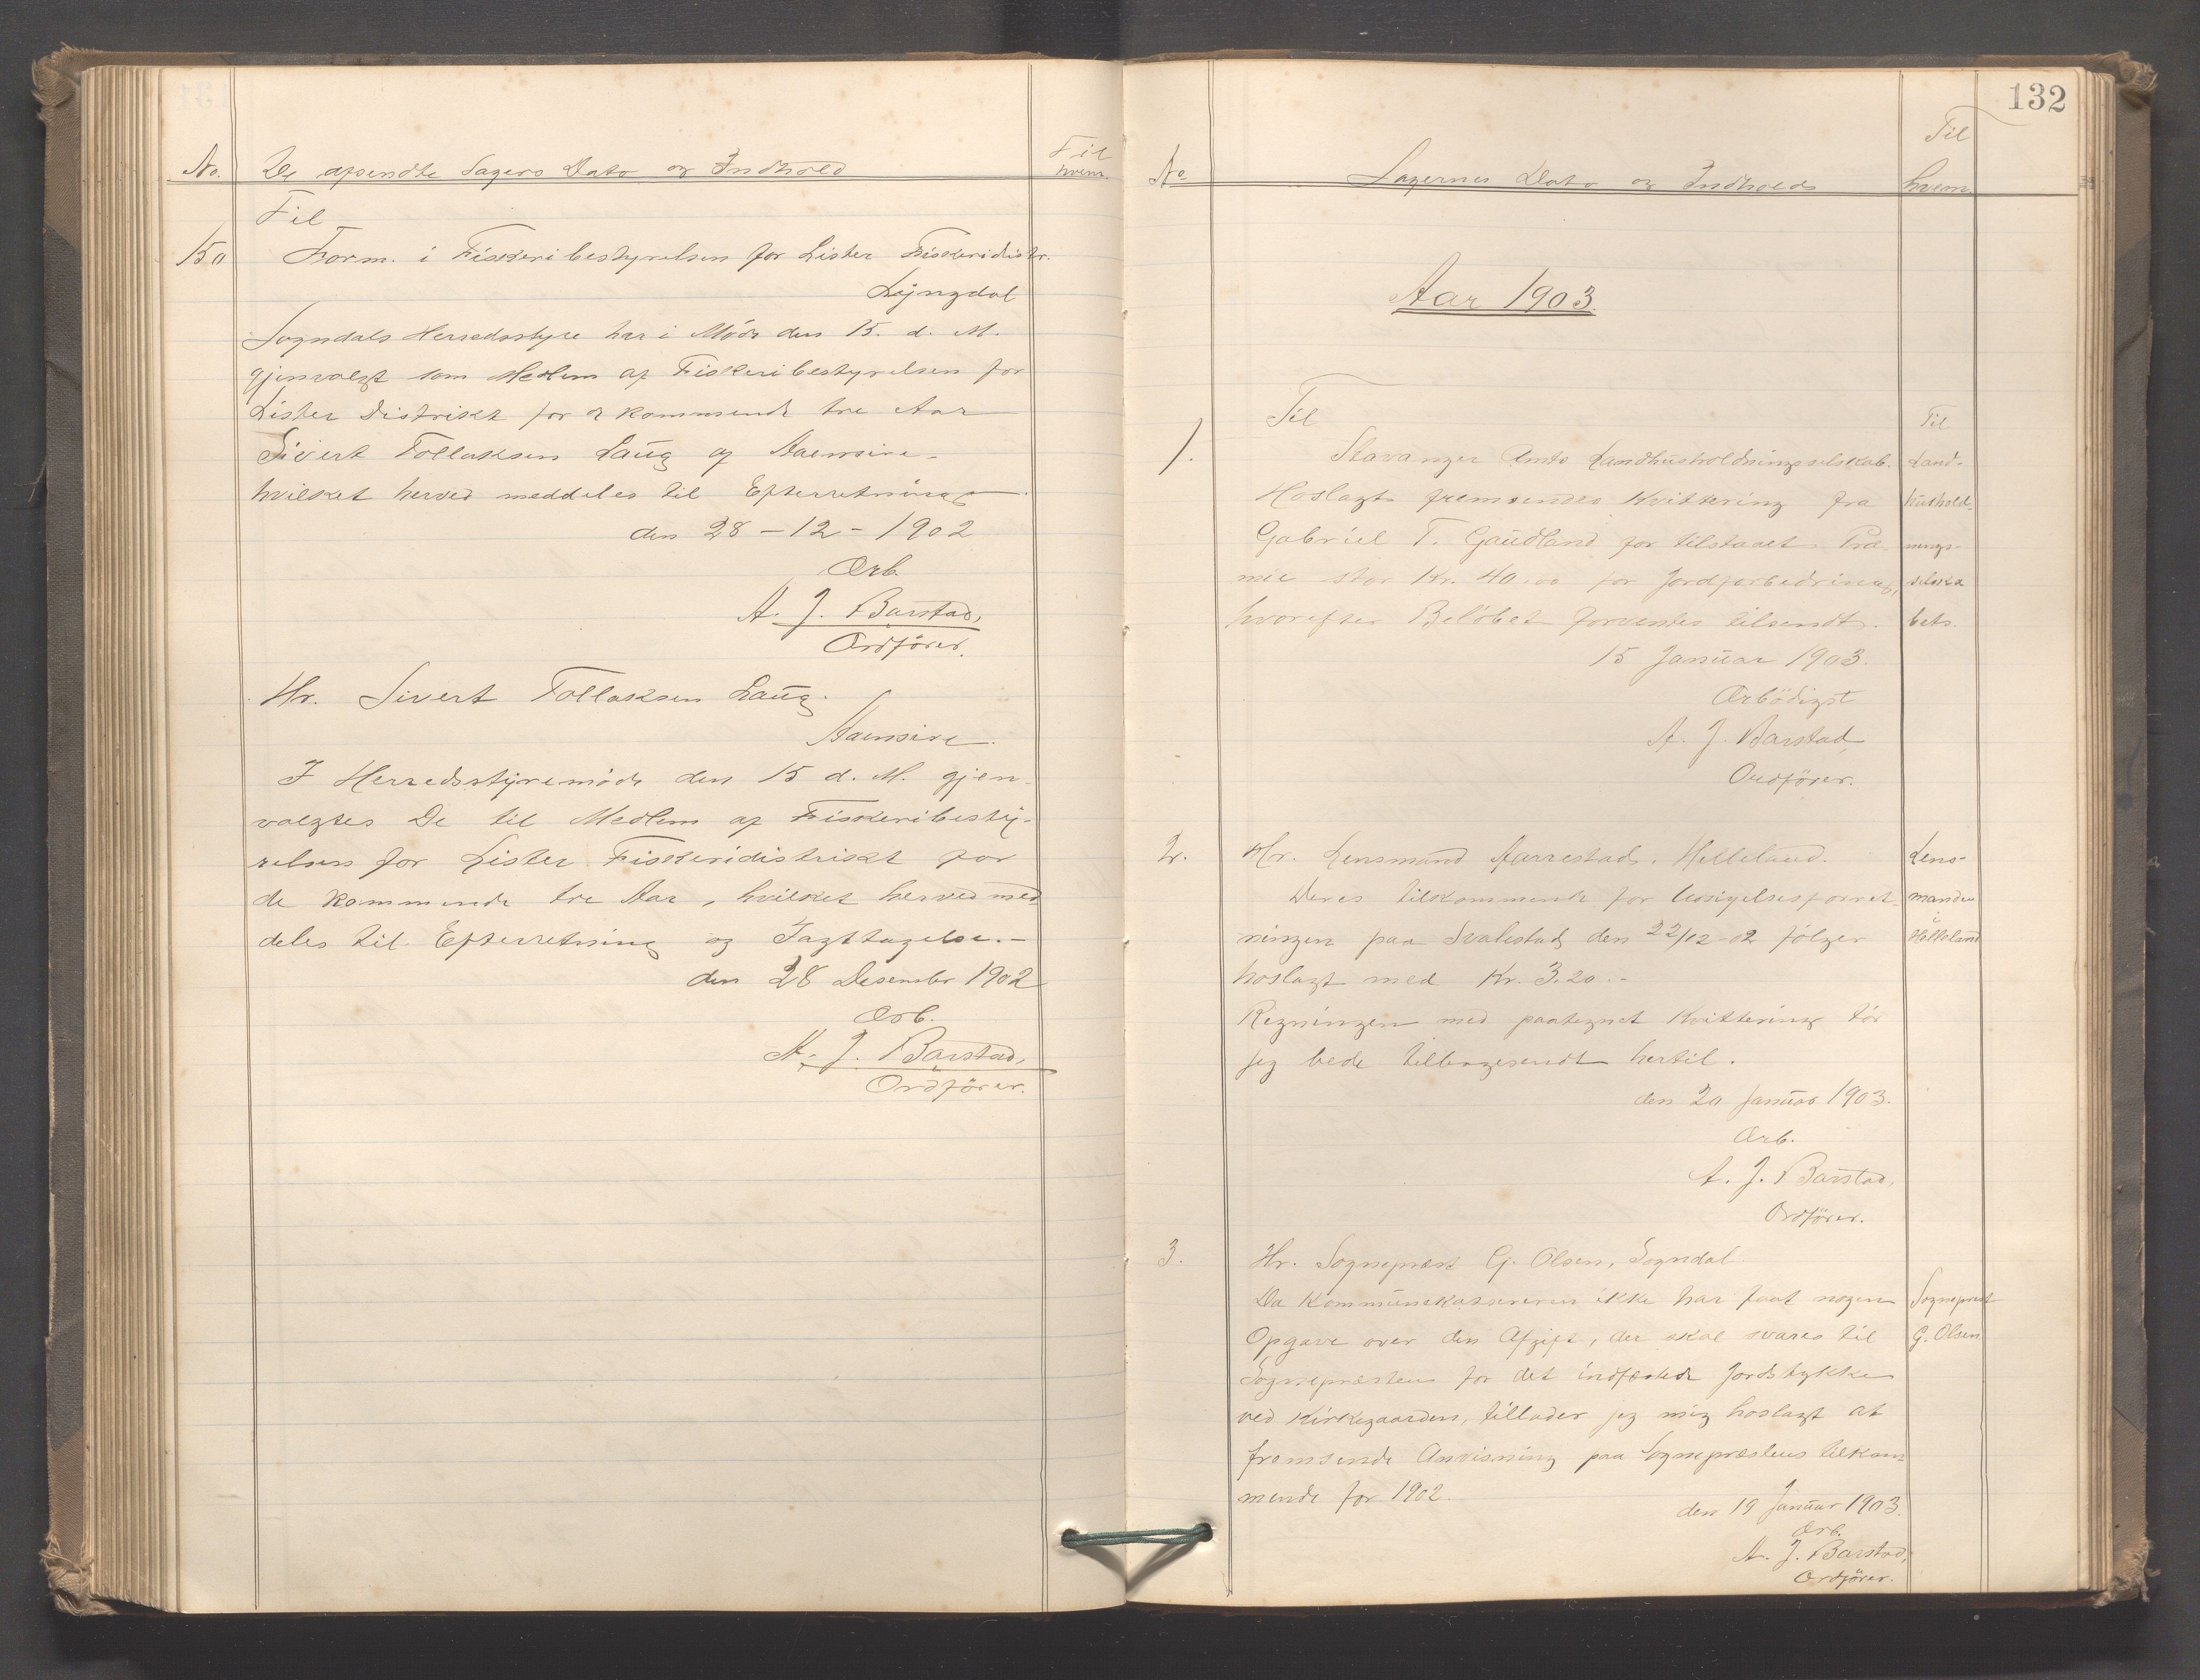 No. De afsendte Sagers Dato og Indhold Til hvem.
Til
150 Form. i Fiskeribestyrelsen for Lister Fiskeridistr.
Lyngdal
Sogndals Herredsstyre har i Möde den 15. d. M.
gjenvalgt som Medlem af Fiskeribestyrelsen for
Lister Distrikt for de kommende tre Aar
Sivert Tollaksen Laug af Aaensire.
hvilket herved meddeles til Efterretning.
den 28 - 12 - 1902
Ærb.
A. J. Barstad,
Ordförer.
Hr. Sivert Tollaksen Laug.
Aaensire.
I Herredsstyremöde den 15 d. M. gjen-
valgtes De til Medlem af Fiskeribesty-
relsen for Lister Fiskeridistrikt for
de kommende tre Aar, hvilket herved med-
deles til Efterretning og Iagttagelse.-
den 28 Desember 1902
Ærb.
A. J. Barstad,
Ordförer.
132
No Sagernes Dato og Indhold Til hvem
Aar 1903.
Til
1. Stavanger Amts Landhusholdningsselskab.
Hoslagt fremsendes Kvittering fra
Gabriel T. Gaudland for tilstaaet Præ-
mie stor Kr. 40.00 for Jordforbedring,
hvorefter Belöbet forventes tilsendt.
15 Januar 1903.
Ærbödigst
A. J. Barstad,
Ordförer.
Til
Land-
hushold-
nings-
selska
bets.
2. Hr. Lensmand Aarrestad, Helleland.
Deres tilkommende for Udsigelsesforret-
ningen paa Svalestad den 22/12 02 fölger
hoslagt med Kr. 3.20.-
Regningen med paategnet Kvittering tör
jeg bede tilbagesendt hertil.
den 20 Januar 1903.
Ærb.
A. J. Barstad,
Ordförer.
Lens-
manden
i
Helleland
3. Hr. Sogneprest G. Olsen, Sogndal.
Da Kommunekassereren ikke har faat nogen
Opgave over den Afgift, der skal svares til
Sognepræsten for det indfæstede Jordstykke
ved Kirkegaarden, tillader jeg mig hoslagt at
fremsende Anvisning paa Sognepræstens tilkom-
mende for 1902.
den 19 Januar 1903.
Ærb.
A. J. Barstad,
Ordförer.
Sogneprest
G. Olsen